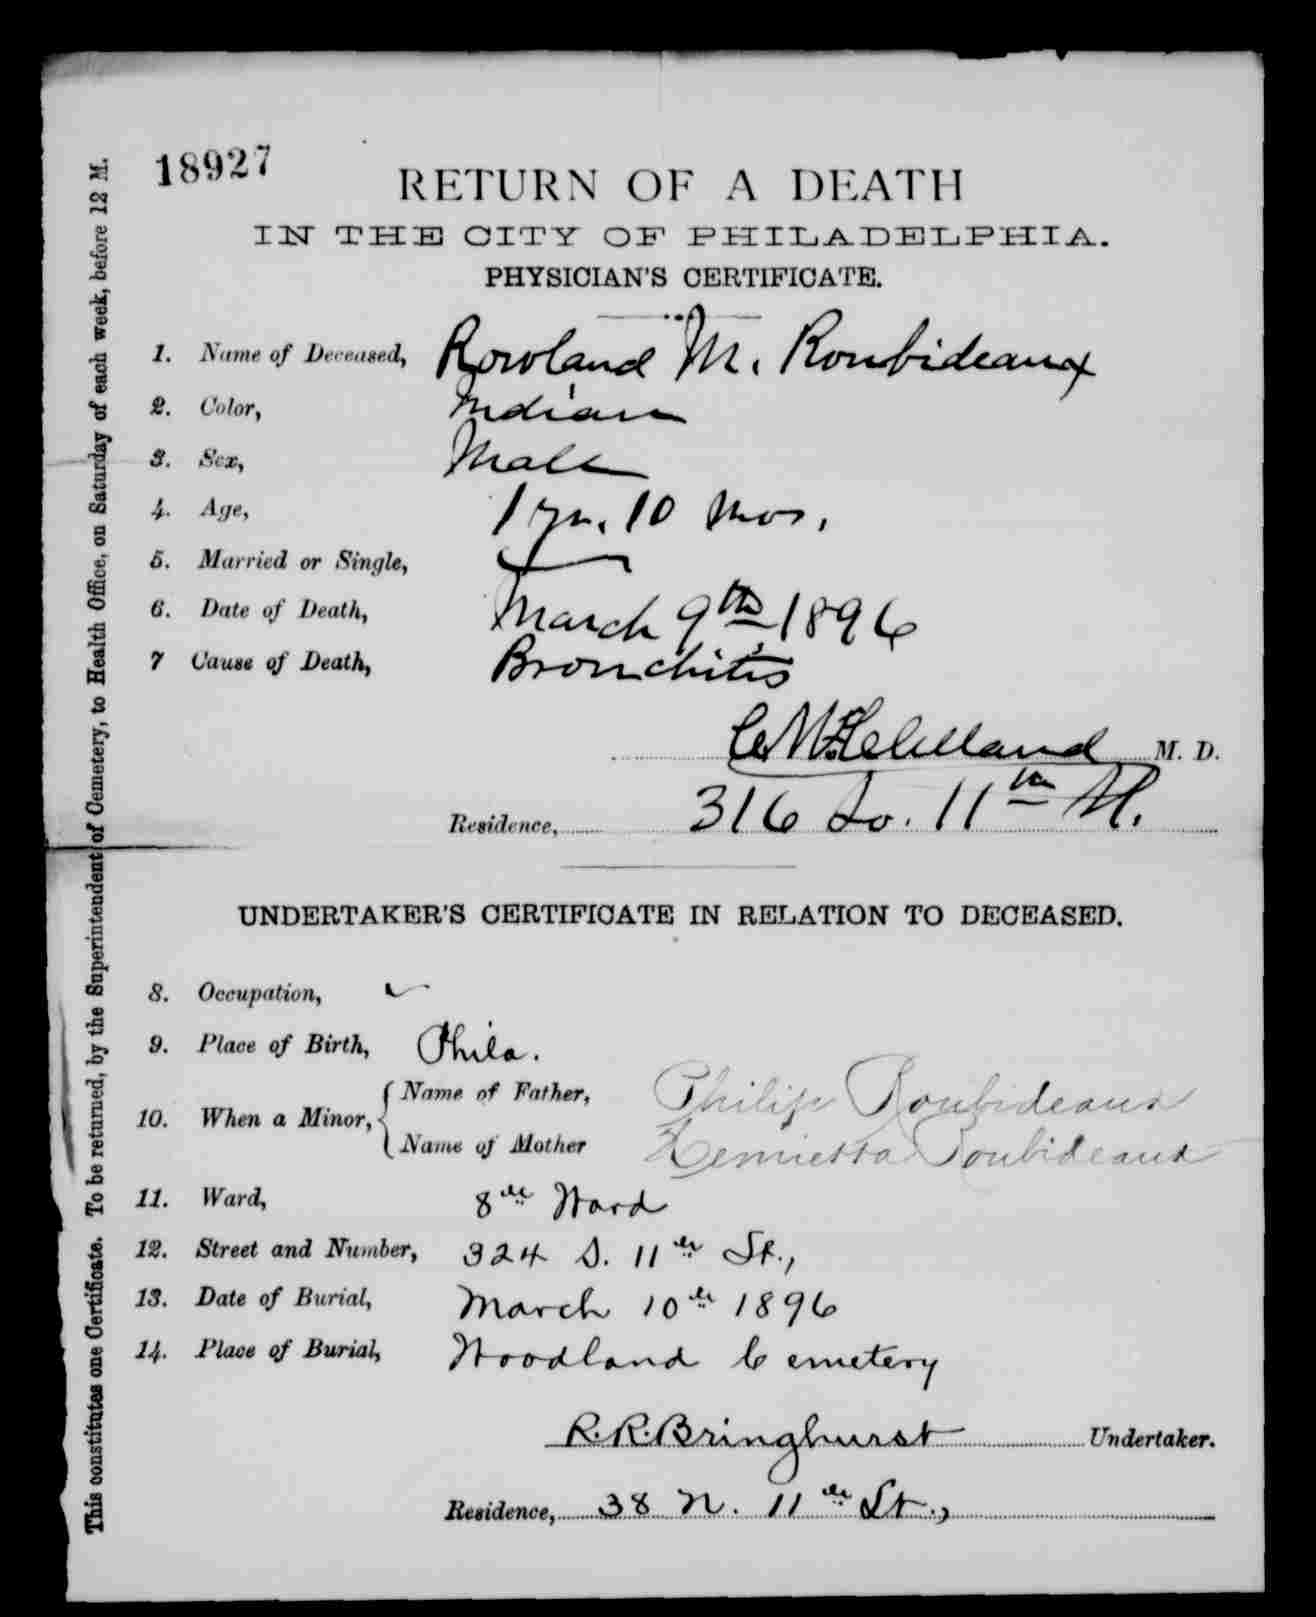 18927
RETURN OF A DEATH
IN THE CITY OF PHILADELPHIA.
PHYSICIAN'S CERTIFICATE.
1. Name of Deceased, Rowland M. Roubideaux
2. Color, Indian
3. Sex, Male
4. Age, 1 yr. 10 mos.
5. Married or Single,
6. Date of Death, March 9th 1896
7 Cause of Death, Bronchitis
M. D.
Residence, 316 So. 11th St.
UNDERTAKER'S CERTIFICATE IN RELATION TO DECEASED.
8. Occupation,
9. Place of Birth, Phila.
10. When a Minor, { Name of Father, Philip Roubideaux
Name of Mother Henrietta Roubideaux
11. Ward, 8th Ward
12. Street and Number, 324 S. 11th St.,
13. Date of Burial, March 10th 1896
14. Place of Burial, Woodland Cemetery
R. R. Bringhurst Undertaker.
Residence, 38 N. 11th St.,
This constitutes one Certificate. To be returned, by the Superintendent of Cemetery, to Health Office, on Saturday of each week, before 12 M.